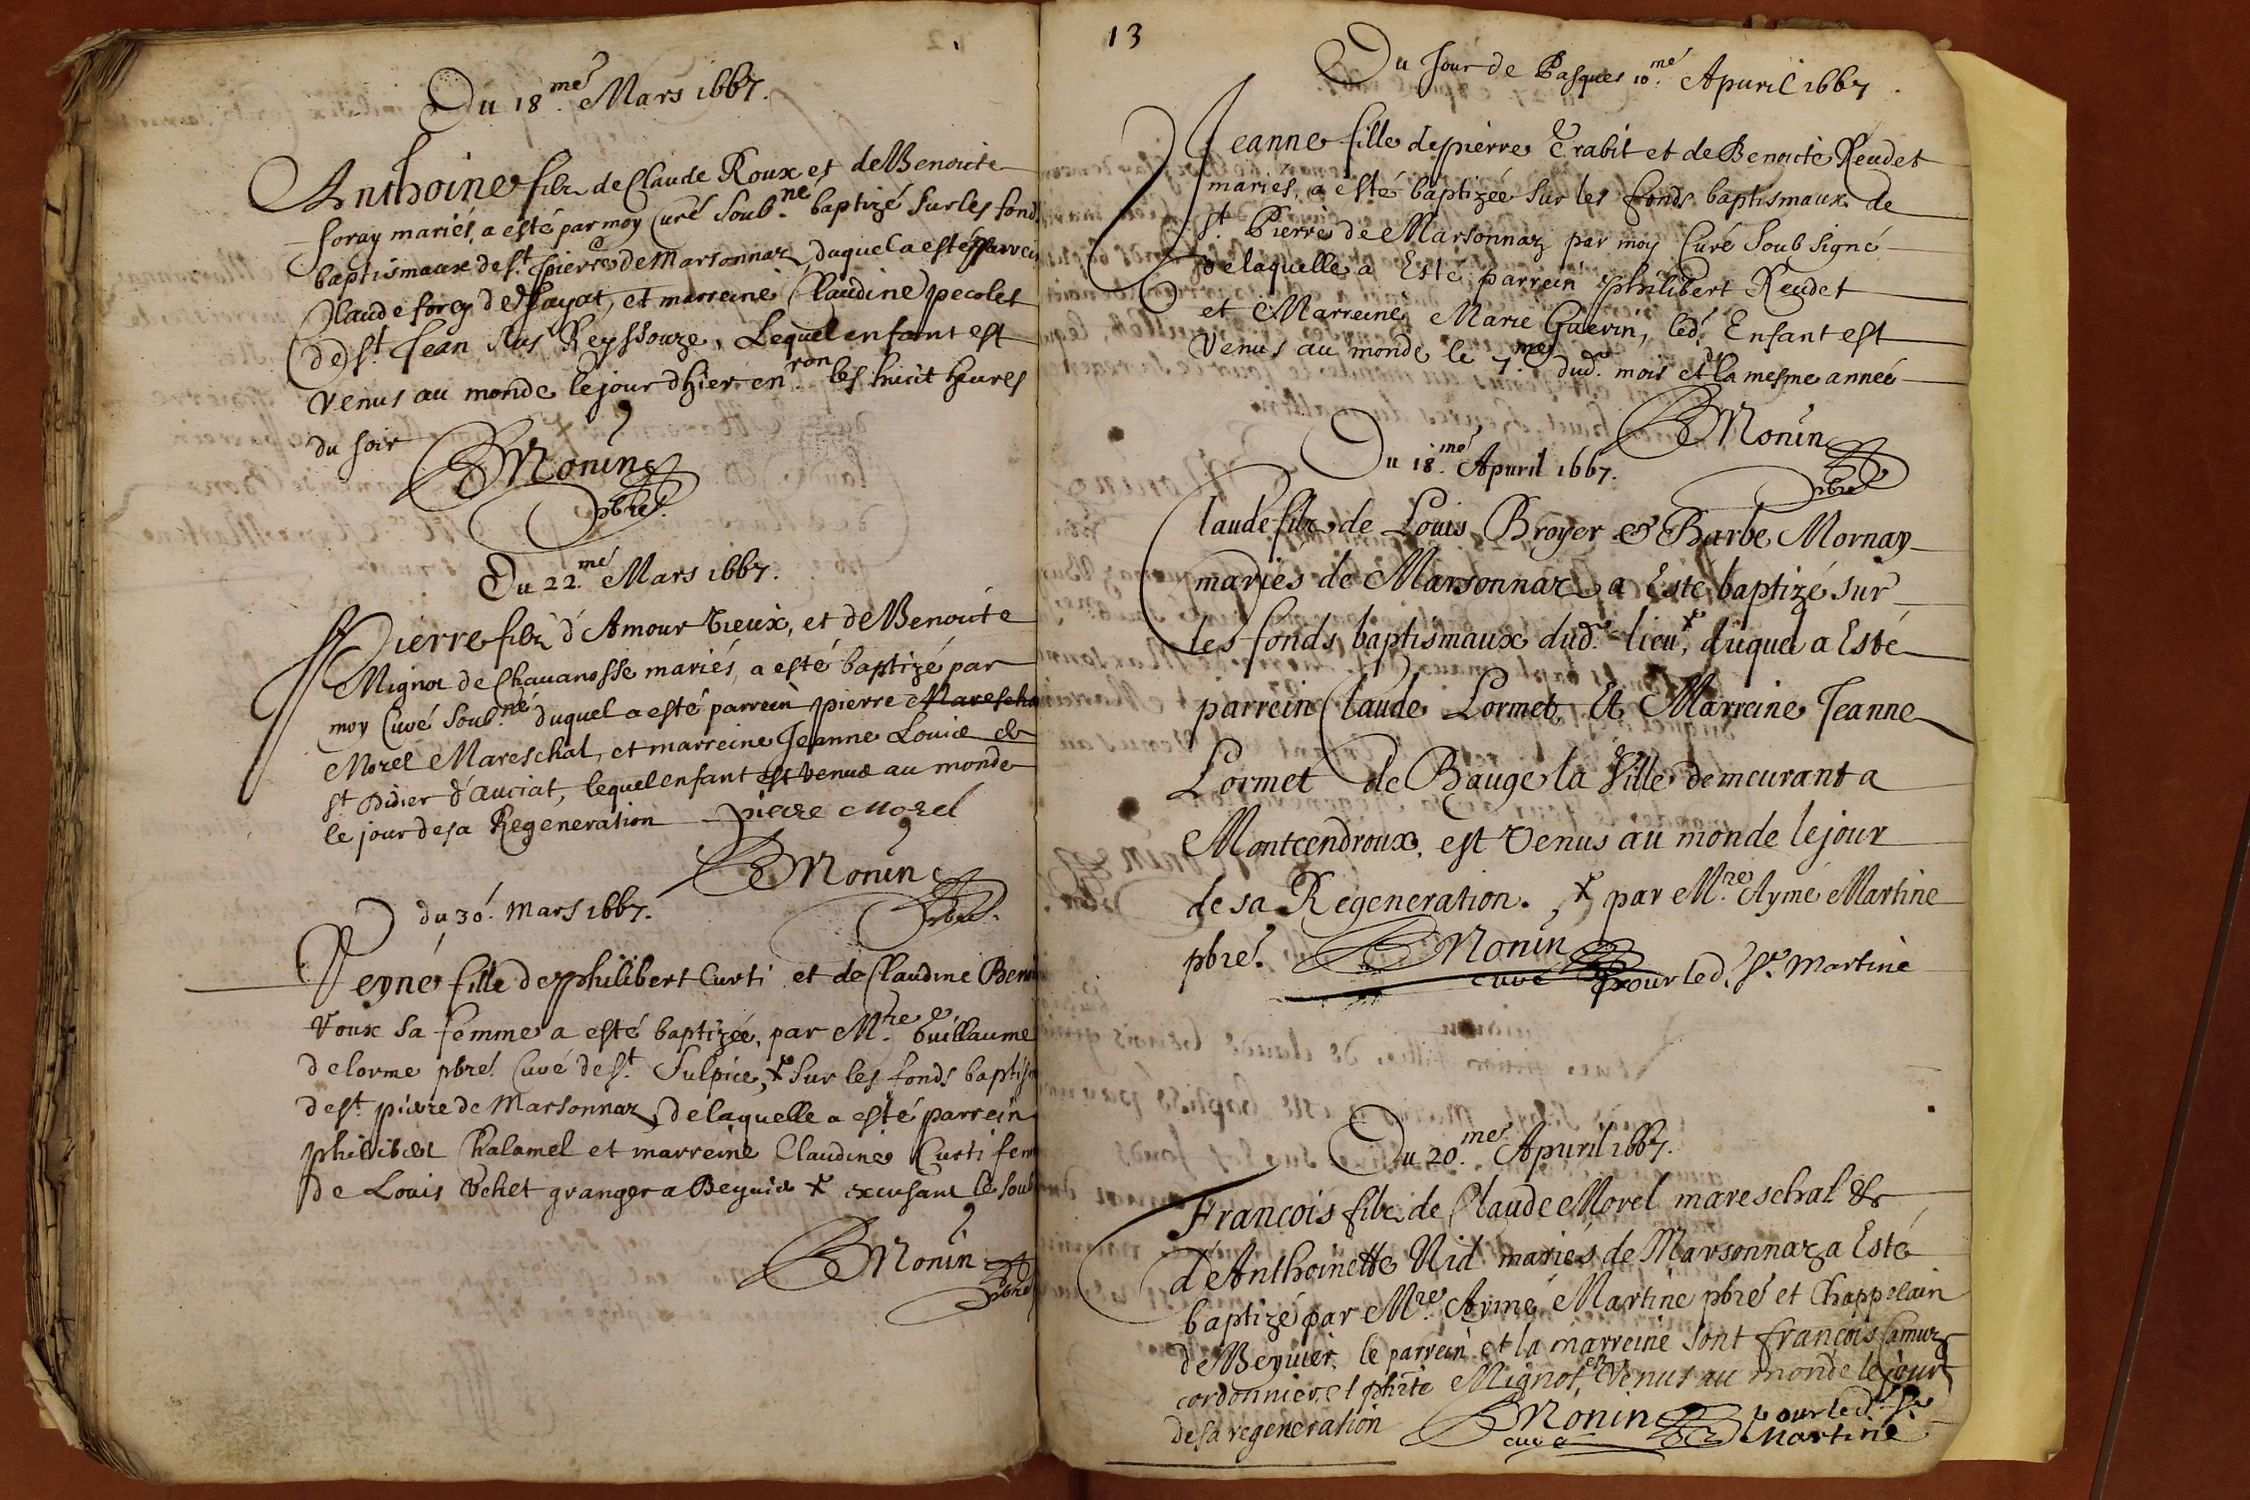 Du 18.me Mars 1667.
Anthoine filz de Claude Roux et de Benoite
foray mariés, a esté par moy Curé Soub.né baptizé Sur les fond
baptismaux de St. pierre de Marsonnaz, duquel a esté parrein
Claude forey de Jayat, et marreine Claudine pecolet
de St. Jean Sus Reyssouze, Lequel enfant est
venus au monde le jour dhier en.ron les huict heures
du soir
Monin
pbre
Du 22.me Mars 1667.
Pierre filz d'Amour Vieux, et de Benoite
Mignot de Chavanosse mariés, a esté baptizé par
moy Curé Soub.né duquel a esté parrein pierre
Morel Mareschal, et marreine Jeanne Louise de
St. Didier d'auciat, lequel enfant est venus au monde
le jour de sa Regeneration pierre Morel
Monin
pbre.
du 30e. Mars 1667.
Reyné fille de philibert Curti et de Claudine
Voux sa femme a esté baptizée, par M.re Guillaume
delorme pbre. Curé de St. Sulpice, x Sur les fonds
de St. pierre de Marsonnaz, de laquelle a esté parrein
philibert Chalamel et marreine Claudine Curti
de Louis Vehet granger a Beyvié x excusant le
Monin
pbre
13
Du Jour de Pasques 10.me Apuril 1667.
Jeanne fille de pierre Trabit et de Benoite Reudet
mariés, a esté baptizée Sur les fonds baptismaux de
St. Pierre de Marsonnaz par moy Curé Soub signé
de laquelle a Esté parrein philibert Reudet
et Marreine Marie Guerin, led. Enfant est
Venus au monde le 7.me dud. mois et de la mesme année
Monin
pbre
Du 18.me Apuril 1667.
Claude filz de Louis Broyer & Barbe Mornay
mariés de Marsonnaz a Esté baptizé sur
les fonds baptismaux dud. lieu, x duquel a Esté
parrein Claude Lormet, Et Marreine Jeanne
Lormet de Bauge la Ville demeurant a
Montcendroux, est Venus au monde le jour
de sa Regeneration. x par M.re Aymé Martine
pbre. Monin
curé pour led. Sr. Martine
Du 20.me Apuril 1667.
François filz de Claude Morel mareschal &
d'Anthoinette Nid mariés de Marsonnaz a Esté
baptizé par M.re Aymé Martine pbre et Chappelain
de Beyvier, le parrein et la marreine sont françois Camuz
cordonnier, et phite Mignot, est Venus au monde le jour
de sa regeneration Monin pour led. Sr.
curé Martine